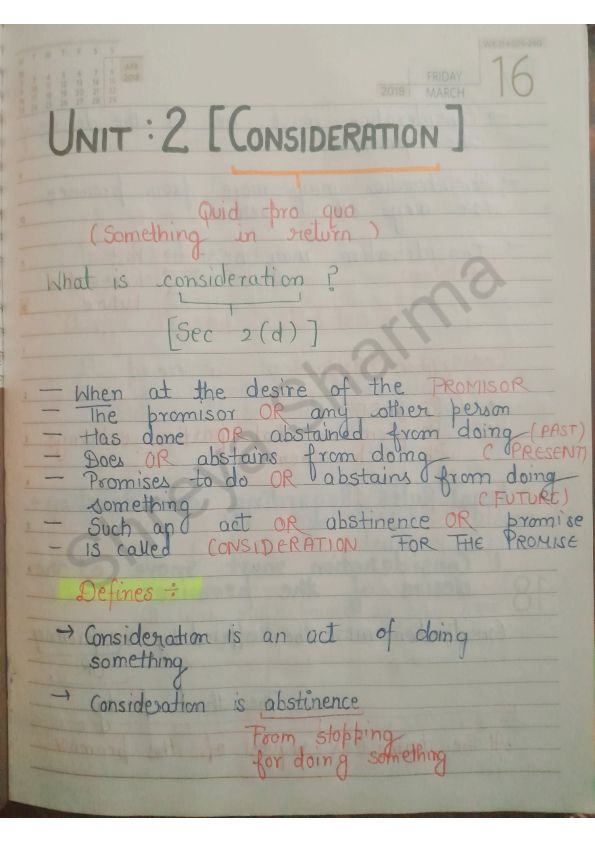 APR
2018
WK 11 (075-290)
FRIDAY
16
2018 MARCH
UNIT : 2 [CONSIDERATION]
Quid pro quo
(Something in return)
What is consideration ?
[Sec 2(d)]
— When at the desire of the PROMISOR
— The promisor OR any other person
— Has done OR abstained from doing (PAST)
— Does OR abstains from doing (PRESENT)
— Promises to do OR abstains from doing
something (FUTURE)
— Such an act OR abstinence OR promise
— is called CONSIDERATION FOR THE PROMISE
Defines ÷
→ Consideration is an act of doing
something
→ Consideration is abstinence
From stopping
for doing something
Shreya Sharma